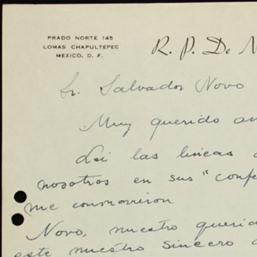 PRADO NORTE 145
LOMAS CHAPULTEPEC
MEXICO, D. F.
R. P. De N
Sr. Salvador Novo
Muy querido am
Leí las lineas
nosotros en sus "Confe
me conmovieron
Novo, nuestro querid
este nuestro sincero